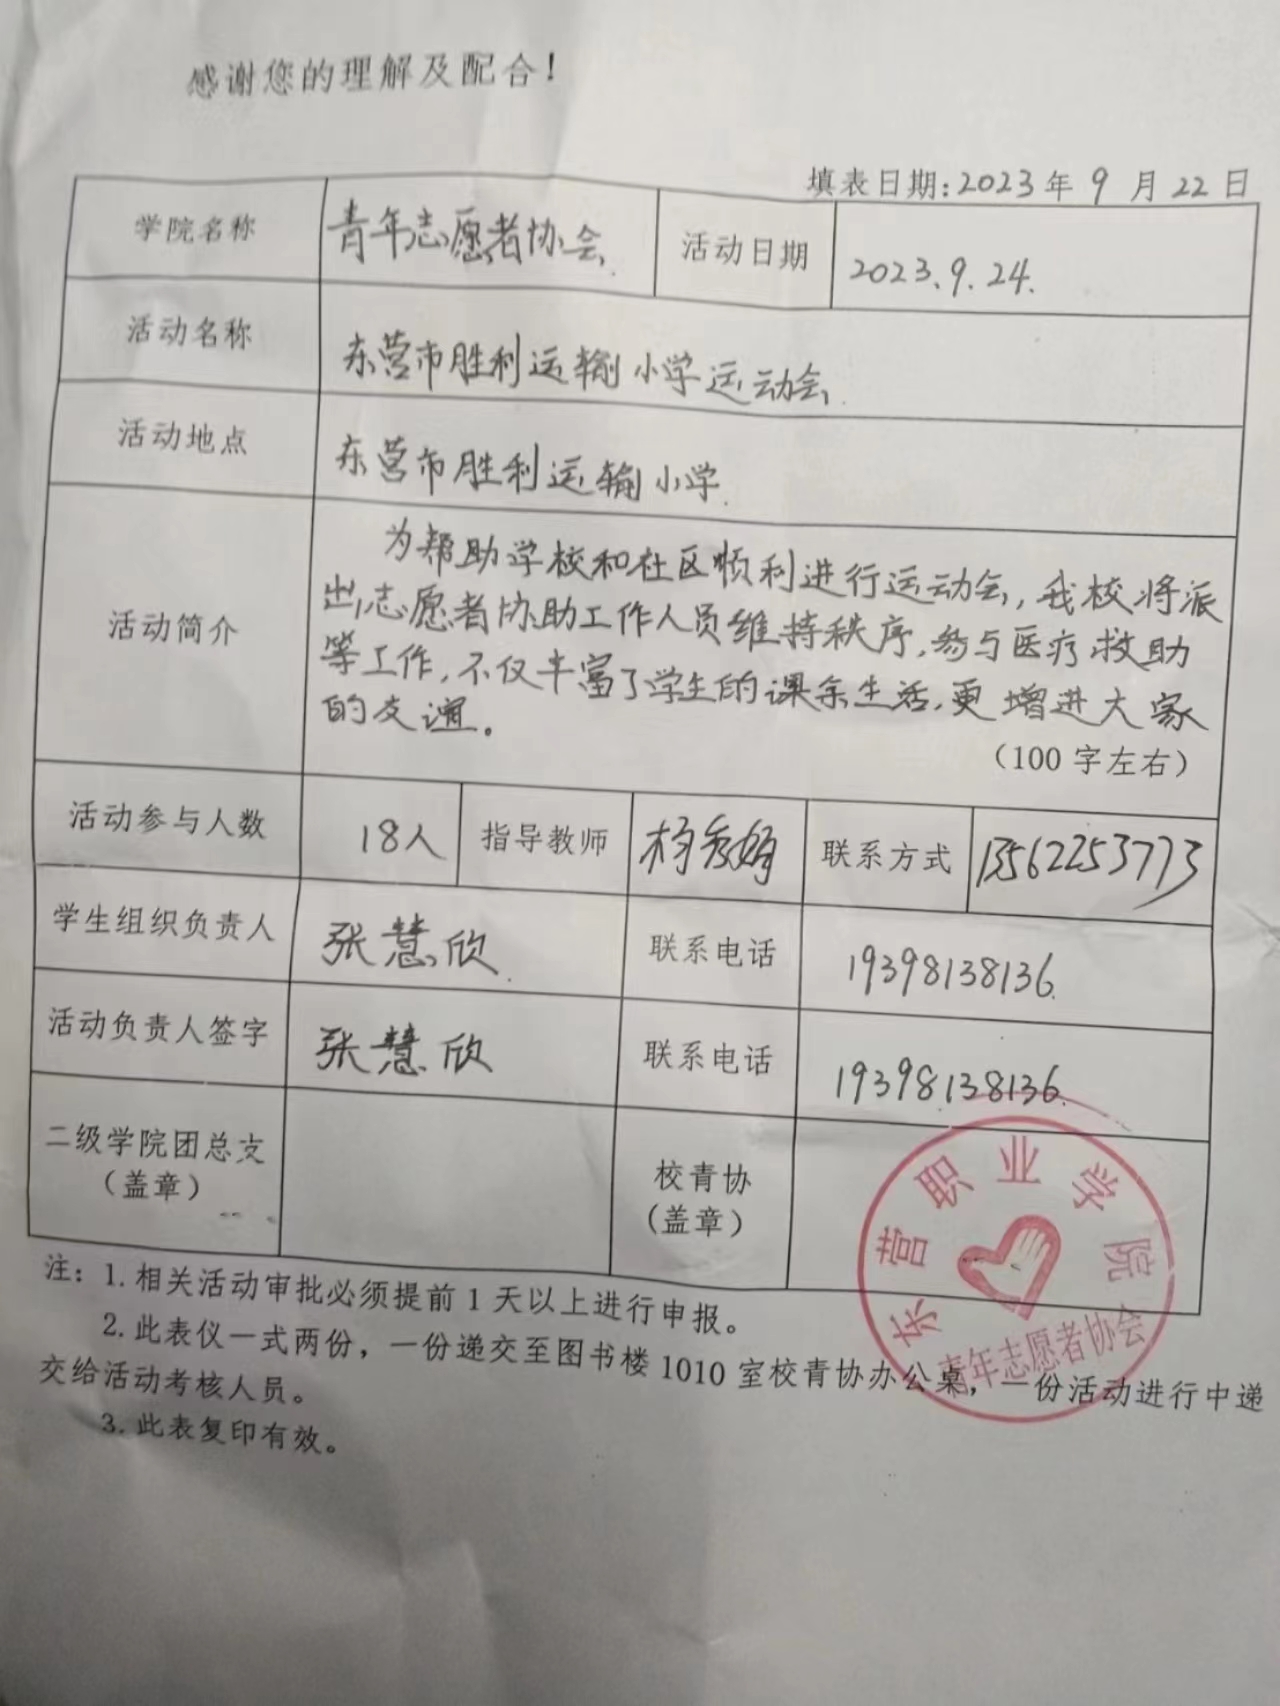 感谢您的理解及配合！
填表日期:2023年9月22日
学院名称 青年志愿者协会 活动日期 2023.9.24.
活动名称 东营市胜利运输小学运动会
活动地点 东营市胜利运输小学
活动简介
为帮助学校和社区顺利进行运动会，我校将派
出志愿者协助工作人员维持秩序，参与医疗救助
等工作，不仅丰富了学生的课余生活，更增进大家
的友谊。
（100字左右）
活动参与人数 18人 指导教师 杨秀娟 联系方式 13562253773
学生组织负责人 张慧欣 联系电话 19398138136
活动负责人签字 张慧欣 联系电话 19398138136
二级学院团总支
（盖章）
校青协
（盖章）
东营职业学院
青年志愿者协会
注：1.相关活动审批必须提前1天以上进行申报。
2.此表仪一式两份，一份递交至图书楼1010室校青协办公桌，一份活动进行中递
交给活动考核人员。
3.此表复印有效。